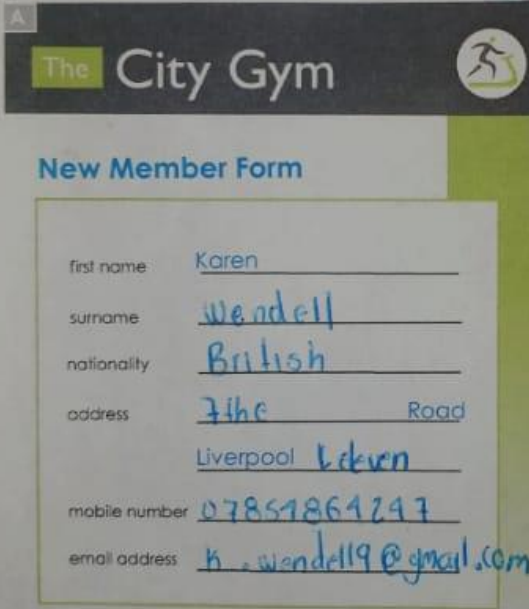 A
The City Gym
New Member Form
first name Karen
surname Wendell
nationality British
address 7 the Road
Liverpool
mobile number 07851864247
email address k.wendell9@gmail.com